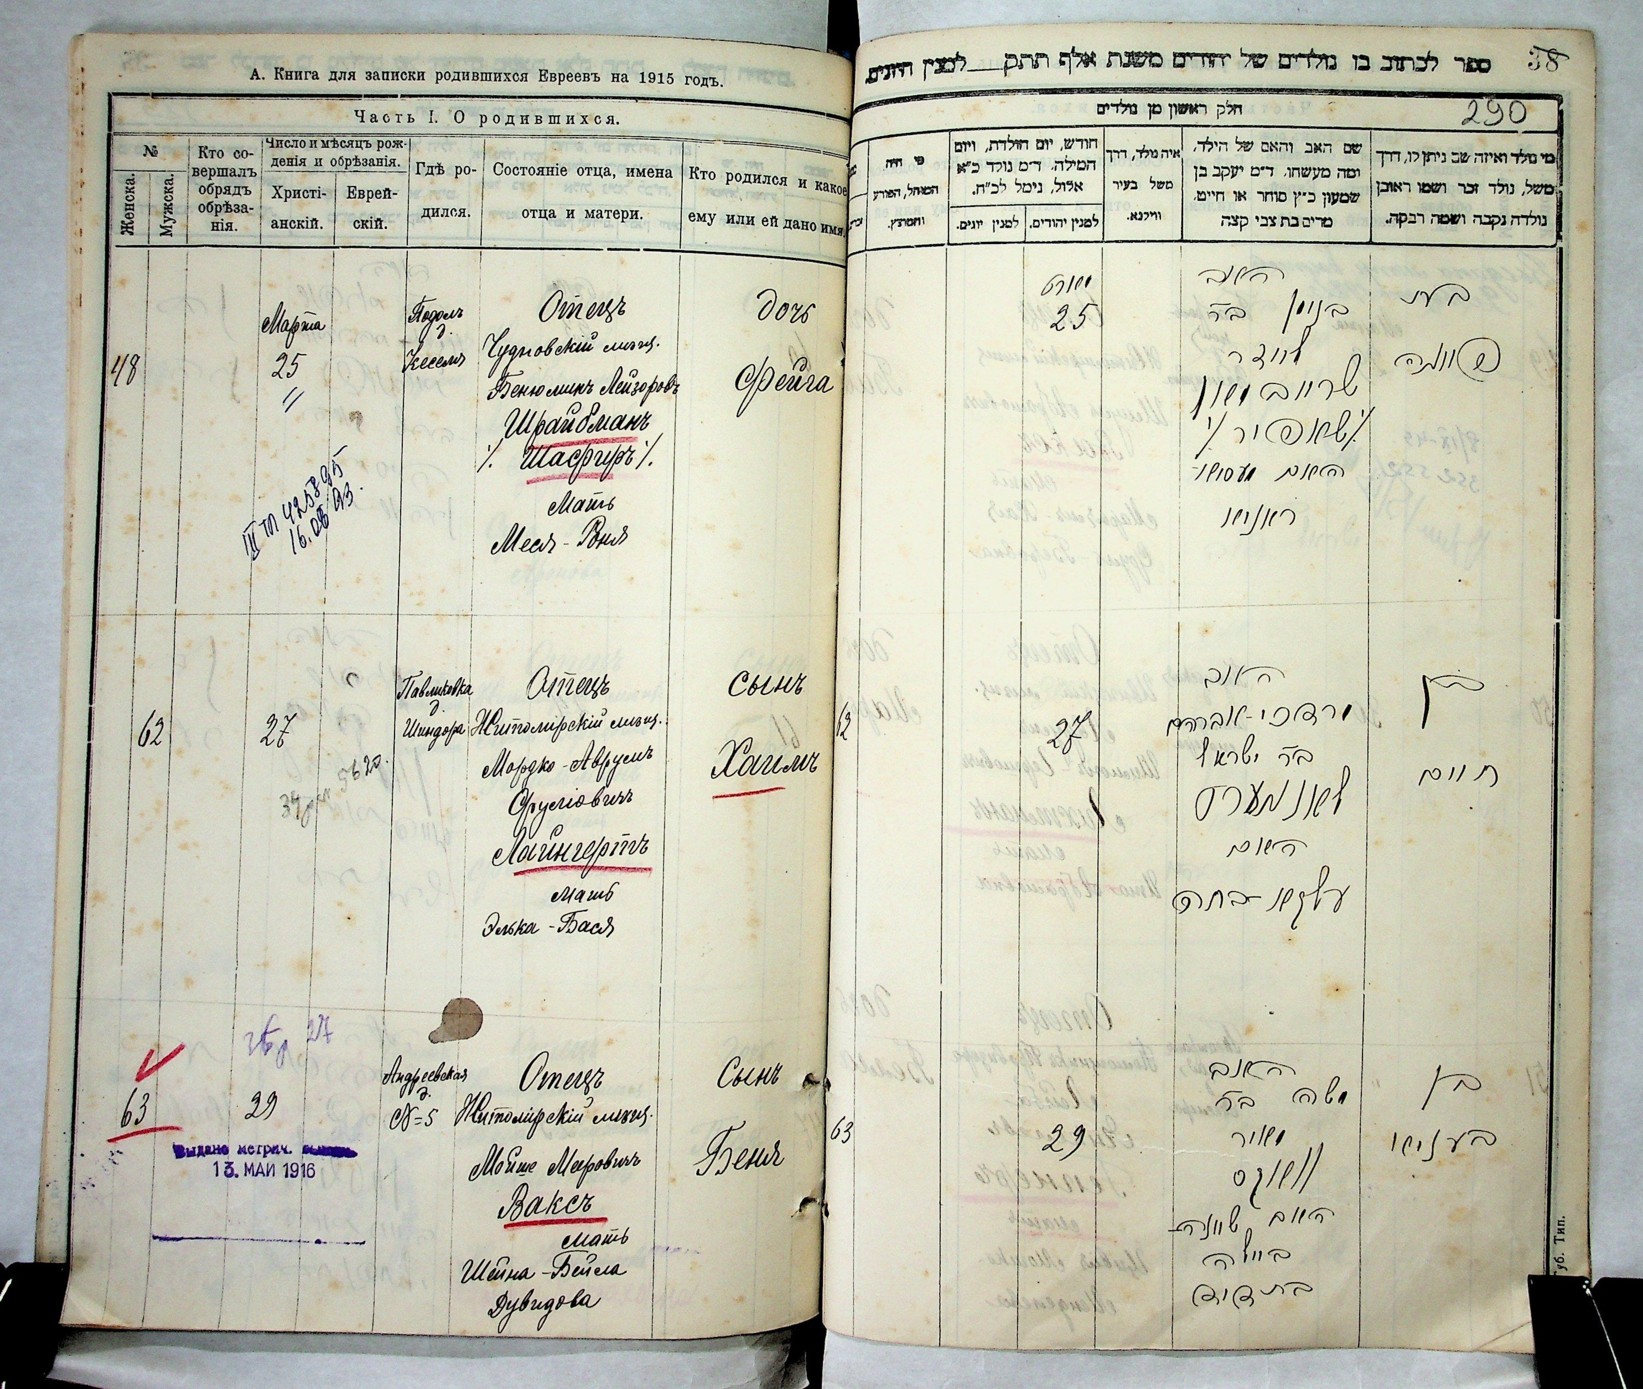 А. Книга для записки родившихся Евреевъ на 1915 годъ.
Часть I. О родившихся.
№
Женска.
Мужска.
Кто со-
вершалъ
обрядъ
обрѣза-
нія.
Число и мѣсяцъ рож-
денія и обрѣзанія.
Христі-
анскій.
Еврей-
скій.
Гдѣ ро-
дился.
Состояніе отца, имена
отца и матери.
Кто родился и какое
ему или ей дано имя.
48
Марта
25
"
Подолъ
д.
Кеселя
Отецъ
Чудновскій мѣщ.
Бенюминъ Лейзоровъ
Шрайбманъ
./. Шафиръ ./.
Мать
Меся-Роня
дочь
Фейга
16.08.93.
62
27
Павликовка
д.
Шиндора
Отецъ
Житомірскій мѣщ.
Мордко-Аврумъ
Сруліовичъ
Лайнгертъ
мать
Элька-Бася
сынъ
Хаимъ
63
29
Андреевская
д.
№=5
Отецъ
Житомірскій мѣщ.
Мойше Меровичъ
Ваксъ
мать
Шейна-Бейла
Дувидова
Сынъ
Беня
Выдано метрич.
13. МАЙ 1916
ספר לכתוב בו נולדים של יהודים משנת אלף תתק__למנין היונים.
38
290
חלק ראשון מן נולדים
מי נולד ואיזה שם ניתן לו, דרך
משל, נולד זכר ושמו ראובן
נולדה נקבה ושמה רבקה.
שם האב והאם של הילד,
ומה מעשהו. ד״מ יעקב בן
שמעון כ״ץ סוחר או חייט,
מרים בת צבי קצה
איה נולד, דרך
משל בעיר
ווילנא.
חודש, יום הולדת, ויום
המילה. ד״מ נולד כ״א
אלול, נימל לכ״ח.
למנין יהודים.
למנין יונים.
מי היה
המוהל, הפורע
והמוצץ.
25
האב
62
27
האב
מרדכי-אברהם
ב״ר ישראל
האם
בן
חיים
63
29
האב
משה ב״ר
מאיר
וואקס
האם שיינה
ביילה
בת דוד
בן
בעניא
Губ. Тип.